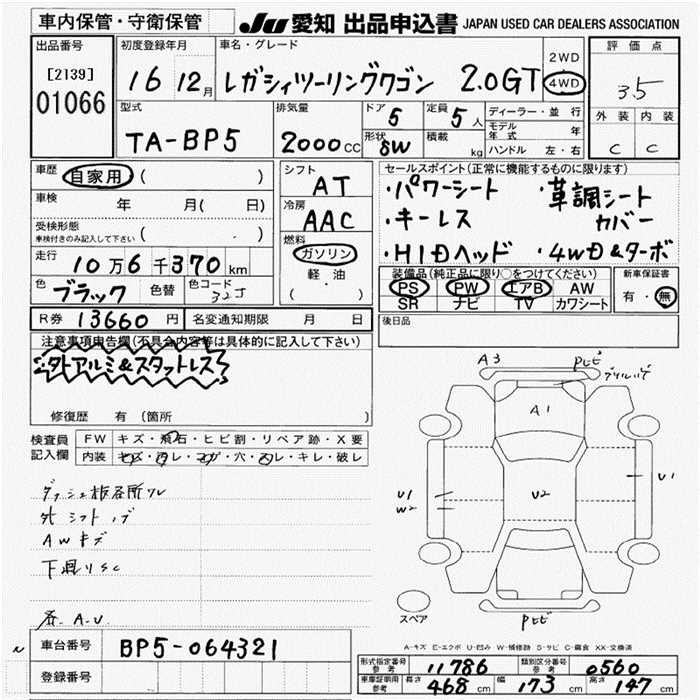 車内保管・守衛保管 JU 愛知 出品申込書 JAPAN USED CAR DEALERS ASSOCIATION
出品番号 [2139] 01066
初度登録年月 16 12月
車名・グレード レガシィツーリングワゴン 2.0GT
2WD 4WD
評価点 3.5
外装 C 内装 C
型式 TA-BP5
排気量 2000cc
ドア 5 定員 5人
形状 SW 積載 kg
ディーラー・並行
モデル年式 年
ハンドル 左・右
車歴 自家用 ( )
車検 年 月( 日)
受検形態
車検付きのみ記入して下さい ( )
走行 10万6千370km
色 ブラック 色替 色コード 32J
シフト AT
冷房 AAC
燃料 ガソリン
軽油
( )
セールスポイント(正常に機能するものに限ります)
・パワーシート ・革調シート
・キーレス カバー
・HIDヘッド ・4WD&ターボ
装備品(純正品に限り○をつけてください)
PS PW エアB AW
SR ナビ TV カワシート
新車保証書
有・無
R券 13660円 名変通知期限 月 日
後日品
注意事項申告欄(不具合内容等は具体的に記入して下さい)
社外アルミ&スタットレス
修復歴 有 (箇所 )
検査員記入欄
FW キズ・飛石・ヒビ割・リペア跡・X要
内装 キズ・汚レ・コゲ・穴・スレ・キレ・破レ
外シフトノブ
AWキズ
A3
A1
U1
U1
W2
U2
スペア
A-キズ E-エクボ U-凹み W-補修跡 S-サビ C-腐食 XX-交換済
車台番号 BP5-064321
登録番号
形式指定番号 参考 11786 類別区分番号 参考 0560
車庫証明用 参考 長さ 468cm 幅 173cm 高さ 147cm